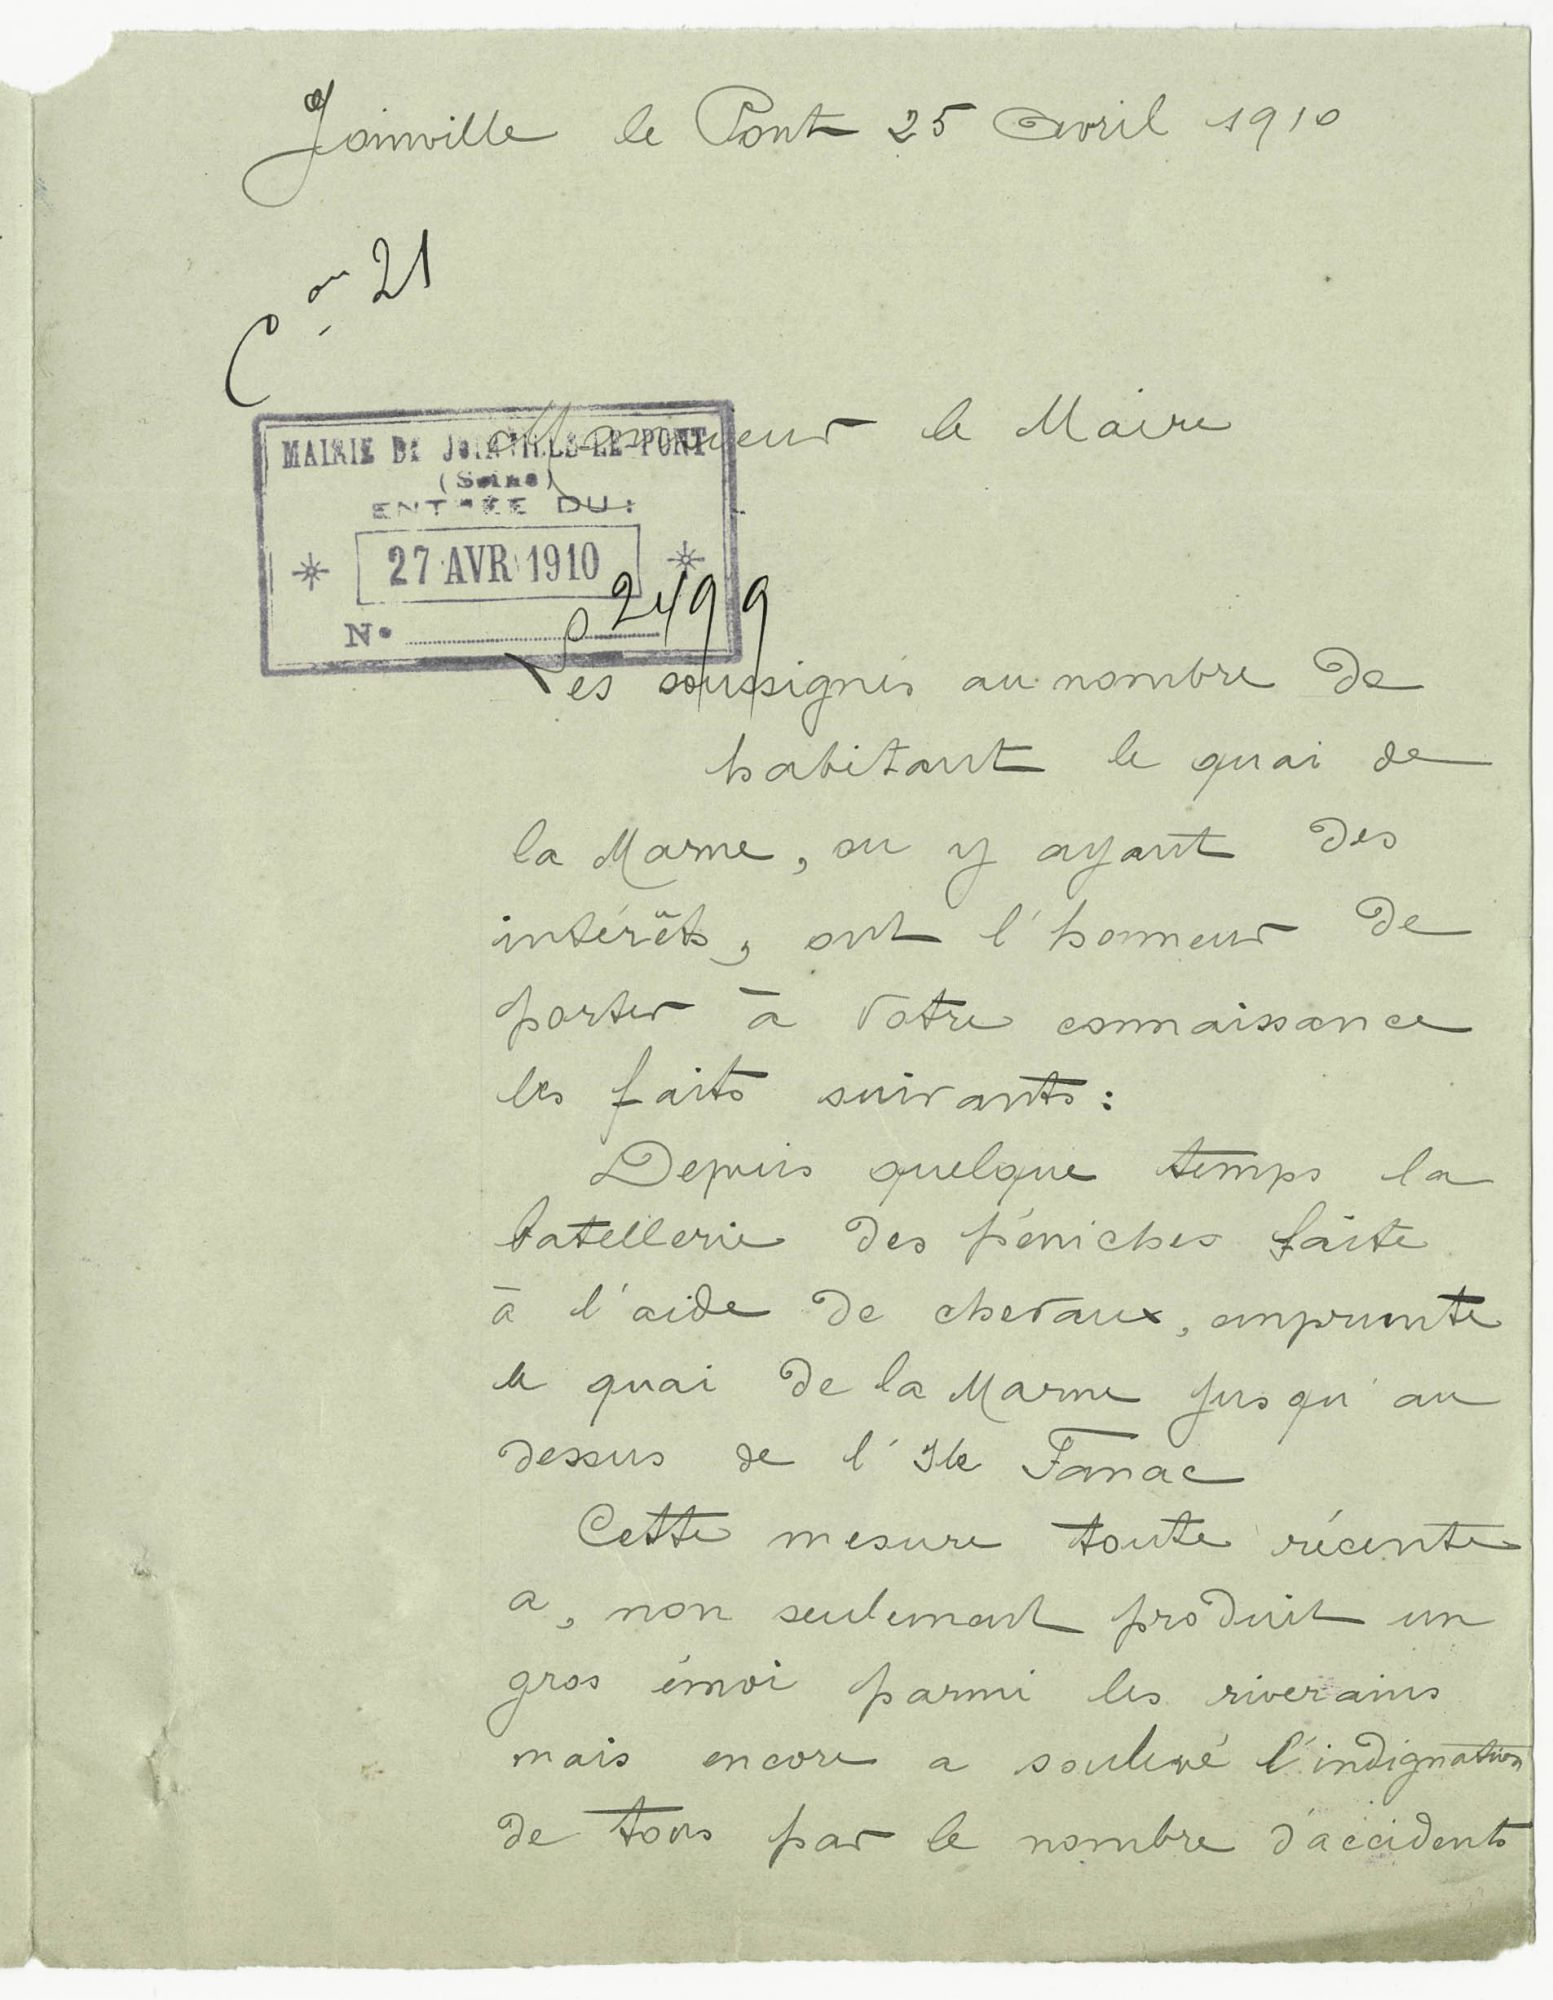 Joinville le Pont 25 Avril 1910
C on 21
Monsieur le Maire
MAIRIE DE JOINVILLE-LE-PONT
(Seine)
ENTRÉE DU:
27 AVR 1910
N° 2499
Les soussignés au nombre de
habitant le quai de
la Marne, ou y ayant des
intérêts, ont l'honneur de
porter à votre connaissance
les faits suivants:
Depuis quelque temps la
batellerie des péniches faite
à l'aide de chevaux, emprunte
le quai de la Marne jusqu'au
dessus de l'Ile Fanac
Cette mesure toute récente
a, non seulement produit un
gros émoi parmi les riverains
mais encore a soulevé l'indignation
de tous par le nombre d'accidents